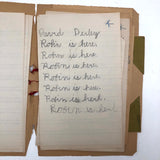 David Dexley
Robin is here.
Robin is here.
Robin is here.
Robin is here.
Robin is here.
Robin is here.
Robin is here.